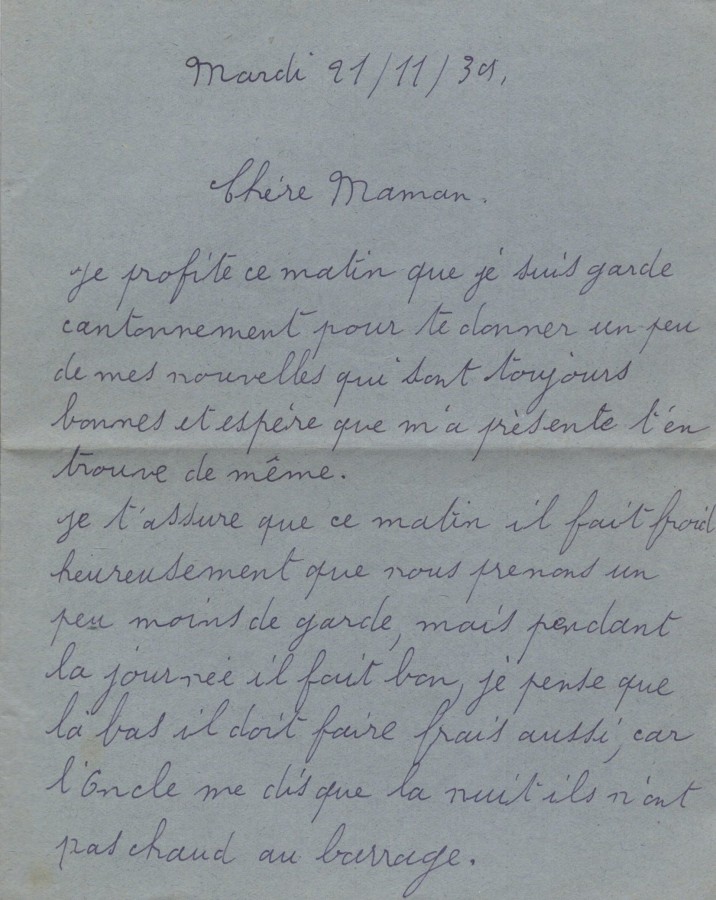 Mardi 21/11/39.
Chére Maman.
Je profite ce matin que je suis garde
cantonnement pour te donner un peu
de mes nouvelles qui sont toujours
bonnes et espére que m'a présente t'en
trouve de même.
Je t'assure que ce matin il fait froid
heureusement que nous prenons un
peu moins de garde, mais pendant
la journée il fait bon, je pense que
là bas il doit faire frais aussi, car
l'Oncle me dis que la nuit ils n'ont
pas chaud au barrage.